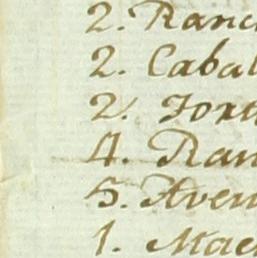 2. Ranc
2. Cabal
2. Fort
4. Ran
5. Aven
1. Mae